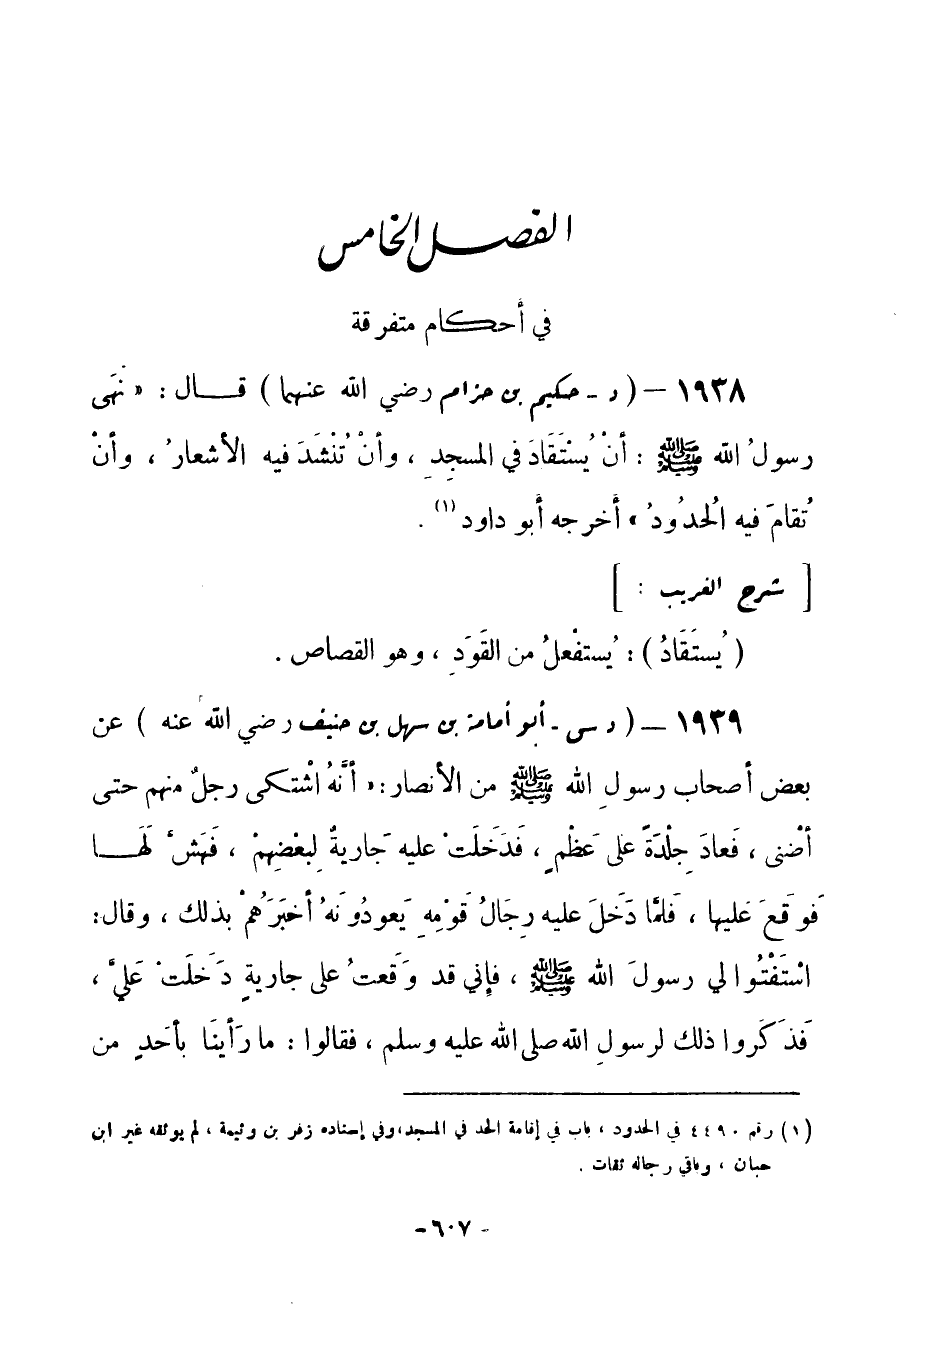 الفصل الخامس
في أحكام متفرقة
١٩٣٨ – ( د - حكيم بن حزام رضي الله عنهما ) قال : « نَهَى
رسولُ الله ﷺ : أنْ يُسْتَقَادَ في المسجدِ ، وأنْ تُنْشَدَ فيه الأشعارُ ، وأنْ
تُقامَ فيه الحُدُودُ » أخرجه أبو داود (١) .
[ شرح الغريب : ]
( يُستَقَادُ ) : يُستفْعلُ من القَوَدِ ، وهو القصاص .
١٩٣٩ – ( د س - أبو أمامة بن سهل بن حنيف رضي الله عنه ) عن
بعض أصحاب رسولِ الله ﷺ من الأنصار : « أنَّهُ اشْتكى رجلٌ منهم حتى
أضْنى ، فَعادَ جِلْدَةً على عَظْمٍ ، فَدَخَلَتْ عليه جَاريةٌ لِبعْضِهِمْ ، فَهَشَّ لَهَا
فَوقَعَ عَليها ، فَلمَّا دَخلَ عليه رِجَالُ قَوْمِهِ يَعودُونَهُ أخبَرَهُمْ بذلك ، وقال:
اسْتَفْتُوا لي رسولَ الله ﷺ ، فإني قد وَقَعتُ على جاريةٍ دَخلَتْ عَليَّ ،
فَذَكَروا ذلك لرسولِ الله صلى الله عليه وسلم ، فقالوا : ما رَأينَا بأحَدٍ من
(١) رقم ٤٤٩٠ في الحدود ، باب في إقامة الحد في المسجد، وفي إسناده زفر بن وثيمة ، لم يوثقه غير ابن
حبان ، وباقي رجاله ثقات .
- ٦٠٧ -